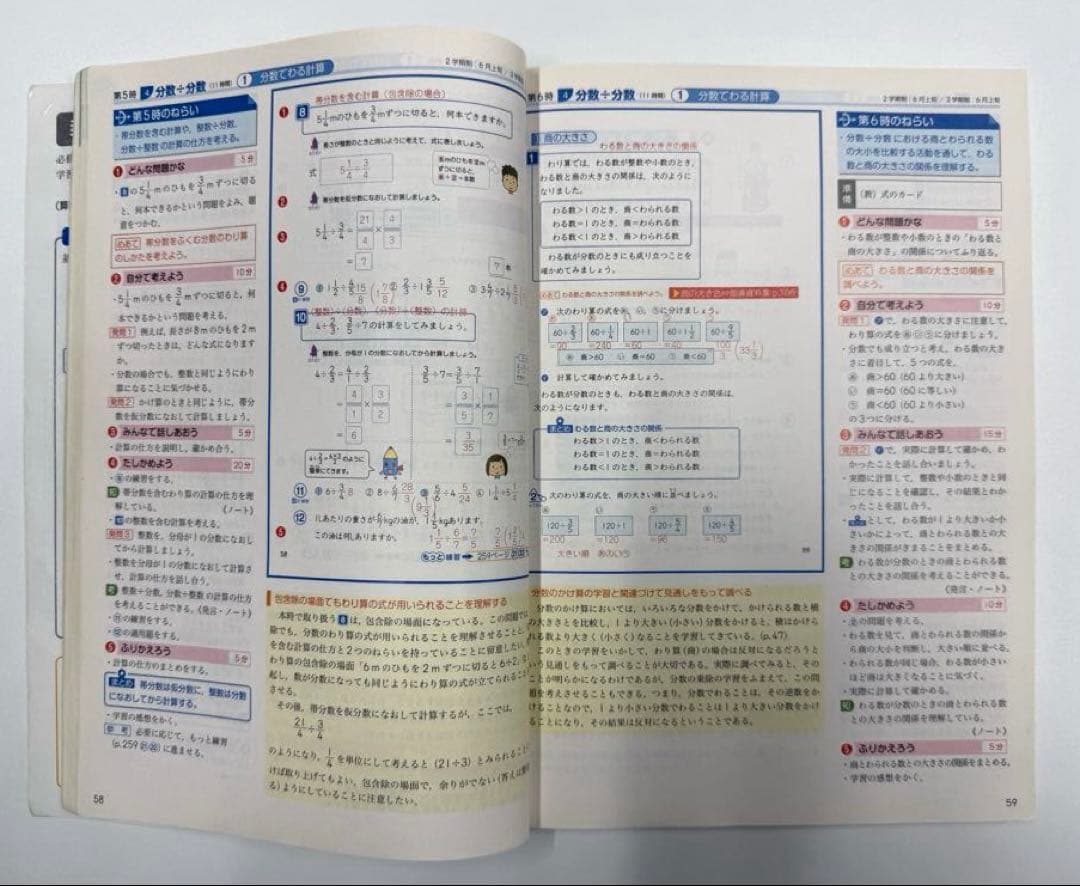 第5時 4 分数÷分数 (11時間) 1 分数でわる計算
2学期制 6月上旬
第5時のねらい
・帯分数を含む計算や、整数÷分数、
分数÷整数の計算の仕方を考える。
1 どんな問題かな 5分
・8の5 1/4 mのひもを3/4 mずつに切る
と、何本できるかという問題をよみ、題
意をつかむ。
めあて 帯分数をふくむ分数のわり算
のしかたを考えよう。
2 自分で考えよう 10分
・5 1/4 mのひもを3/4 mずつに切ると、何
本できるかを求める式を考える。
発問1 例えば、長さが8mのひもを2m
ずつ切ったときは、どんな式になります
か。
・分数の場合でも、整数と同じようにわり
算になることに気づかせる。
発問2 かけ算のときと同じように、帯分
数を仮分数になおして計算しましょう。
3 みんなで話しあおう 5分
・計算の仕方を説明し、確かめ合う。
4 たしかめよう 20分
・9の練習をする。
帯分数を含むわり算の計算の仕方を理
解している。 《ノート》
・10の整数を含む計算を考える。
発問3 整数を、分母が1の分数になおし
てから計算しましょう。
・整数を分母が1の分数になおして計算さ
せ、計算の仕方を話し合う。
整数÷分数、分数÷整数の計算の仕方
を考えることができる。《発言・ノート》
・11の練習をする。
・12の適用題をする。
5 ふりかえろう 5分
・計算の仕方のまとめをする。
まとめ 帯分数は仮分数に、整数は分数
になおしてから計算する。
・学習の感想をかく。
参考 必要に応じて、もっと練習
(p.259 21 22)に進ませる。
58
帯分数を含む計算(包含除の場合)
1 8 5 1/4 mのひもを3/4 mずつに切ると、何本できますか。
長さが整数のときと同じように考えて、式に表しましょう。
式 5 1/4 ÷ 3/4
2 帯分数を仮分数になおして計算しましょう。
3 5 1/4 ÷ 3/4 = 21/4 × 4/3
= 7
7 本
4 9
10 (整数)÷(分数)、(分数)÷(整数)の計算
4÷2/3、3/5÷7の計算をしてみましょう。
整数を、分母が1の分数になおしてから計算しましょう。
4÷2/3 = 4/1 ÷ 2/3
= 4/1 × 3/2
= 6
3/5÷7 = 3/5 ÷ 7/1
= 3/5 × 1/7
= 3/35
のように
簡単にできます。
11
12
5 この油は何Lありますか。
58
もっと練習
包含除の場面でもわり算の式が用いられることを理解する
本時で取り扱う8は、包含除の場面になっている。この問題では
除でも、分数のわり算の式が用いられることを理解させること、
を含む計算の仕方と2つのねらいを持っていることに留意したい。
わり算の包含除の場面「6mのひもを2mずつに切ると6÷2」
起し、数が分数になっても同じようにわり算の式が立てられること
させる。
その後、帯分数を仮分数になおして計算するが、ここでは、
21/4 ÷ 3/4
のようになり、1/4を単位にして考えると(21÷3)とみられること
けば取り上げてもよい。包含除の場面で、余りがでない(答えは整
る)ようにしていることに注意したい。
第6時 4 分数÷分数 (11時間) 1 分数でわる計算
2学期制 6月上旬/3学期制 6月上旬
商の大きさ
わる数と商の大きさの関係
1 わり算では、わる数が整数や小数のとき、
わる数と商の大きさの関係は、次のように
なりました。
わる数>1のとき、商<わられる数
わる数=1のとき、商=わられる数
わる数<1のとき、商>わられる数
わる数が分数のときにも成り立つことを
確かめてみましょう。
めあて わる数と商の大きさの関係を調べよう。
次のわり算の式をあ、い、うに分けましょう。
60÷2/3 60÷1/4 60÷1 60÷1 1/2 60÷9/5
=90 =240 =60 =40 100/3 (33 1/3)
あ 商>60 い 商=60 う 商<60
計算して確かめてみましょう。
わる数が分数のときも、わる数と商の大きさの関係は、
次のようになります。
まとめ わる数と商の大きさの関係
わる数>1のとき、商<わられる数
わる数=1のとき、商=わられる数
わる数<1のとき、商>わられる数
2 次のわり算の式を、商の大きい順に並べましょう。
あ い う え
120÷3/5 120÷1 120÷5/4 120÷4/5
=200 =120 =96 =150
大きい順 あえいう
分数のかけ算の学習と関連づけて見通しをもって調べる
分数のかけ算においては、いろいろな分数をかけて、かけられる数と積
の大きさを比較し、1より大きい(小さい)分数をかけると、積はかけ
られる数より大きく(小さく)なることを学習してきている。(p.47)
このときの学習をいかして、わり算(商)の場合は反対になるだろうと
いう見通しをもって調べることが大切である。実際に調べてみると、その
ことが明らかになるわけであるが、分数の乗除の学習をふまえて、この関
を考えさせることもできる。つまり、分数でわることは、その逆数をか
けることなので、1より小さい分数でわることは1より大きい分数をかけ
ることになり、その結果は反対になるということである。
第6時のねらい
・分数÷分数における商とわられる数
の大小を比較する活動を通して、わる
数と商の大きさの関係を理解する。
準備 (教)式のカード
1 どんな問題かな 5分
・わる数が整数や小数のときの「わる数と
商の大きさ」の関係についてふり返る。
めあて わる数と商の大きさの関係を
調べよう。
2 自分で考えよう 10分
発問1 で、わる数の大きさに注意して、
わり算の式をあいうに分けましょう。
・分数でも成り立つと考え、わる数の大き
さに着目して、5つの式を、
あ 商>60(60より大きい)
い 商=60(60に等しい)
う 商<60(60より小さい)
の3つに分ける。
3 みんなで話しあおう 15分
発問2 で、実際に計算して確かめ、わ
かったことを話し合いましょう。
・実際に計算して、整数や小数のときと同
じになることを確認し、その結果とわか
ったことを話し合う。
・まとめとして、わる数が1より大きいか小
さいかによって、商とわられる数との大
きさの関係がきまることをまとめる。
わる数がときの商とわられる数
との大きさの関係を考えることができる。
《発言・ノート》
4 たしかめよう 10分
・2の問題を考える。
・わる数を見て、商とわられる数の関係か
ら商の大小を判断し、大きい順に並べる。
・わられる数が同じ場合、わる数が小さい
ほど商は大きくなることに気づく。
・実際に計算して確かめる。
わる数が分数のときの商とわられる数
との大きさの関係を理解している。
《ノート》
5 ふりかえろう 5分
・商とわられる数との大きさの関係をまとめる。
・学習の感想をかく。
59